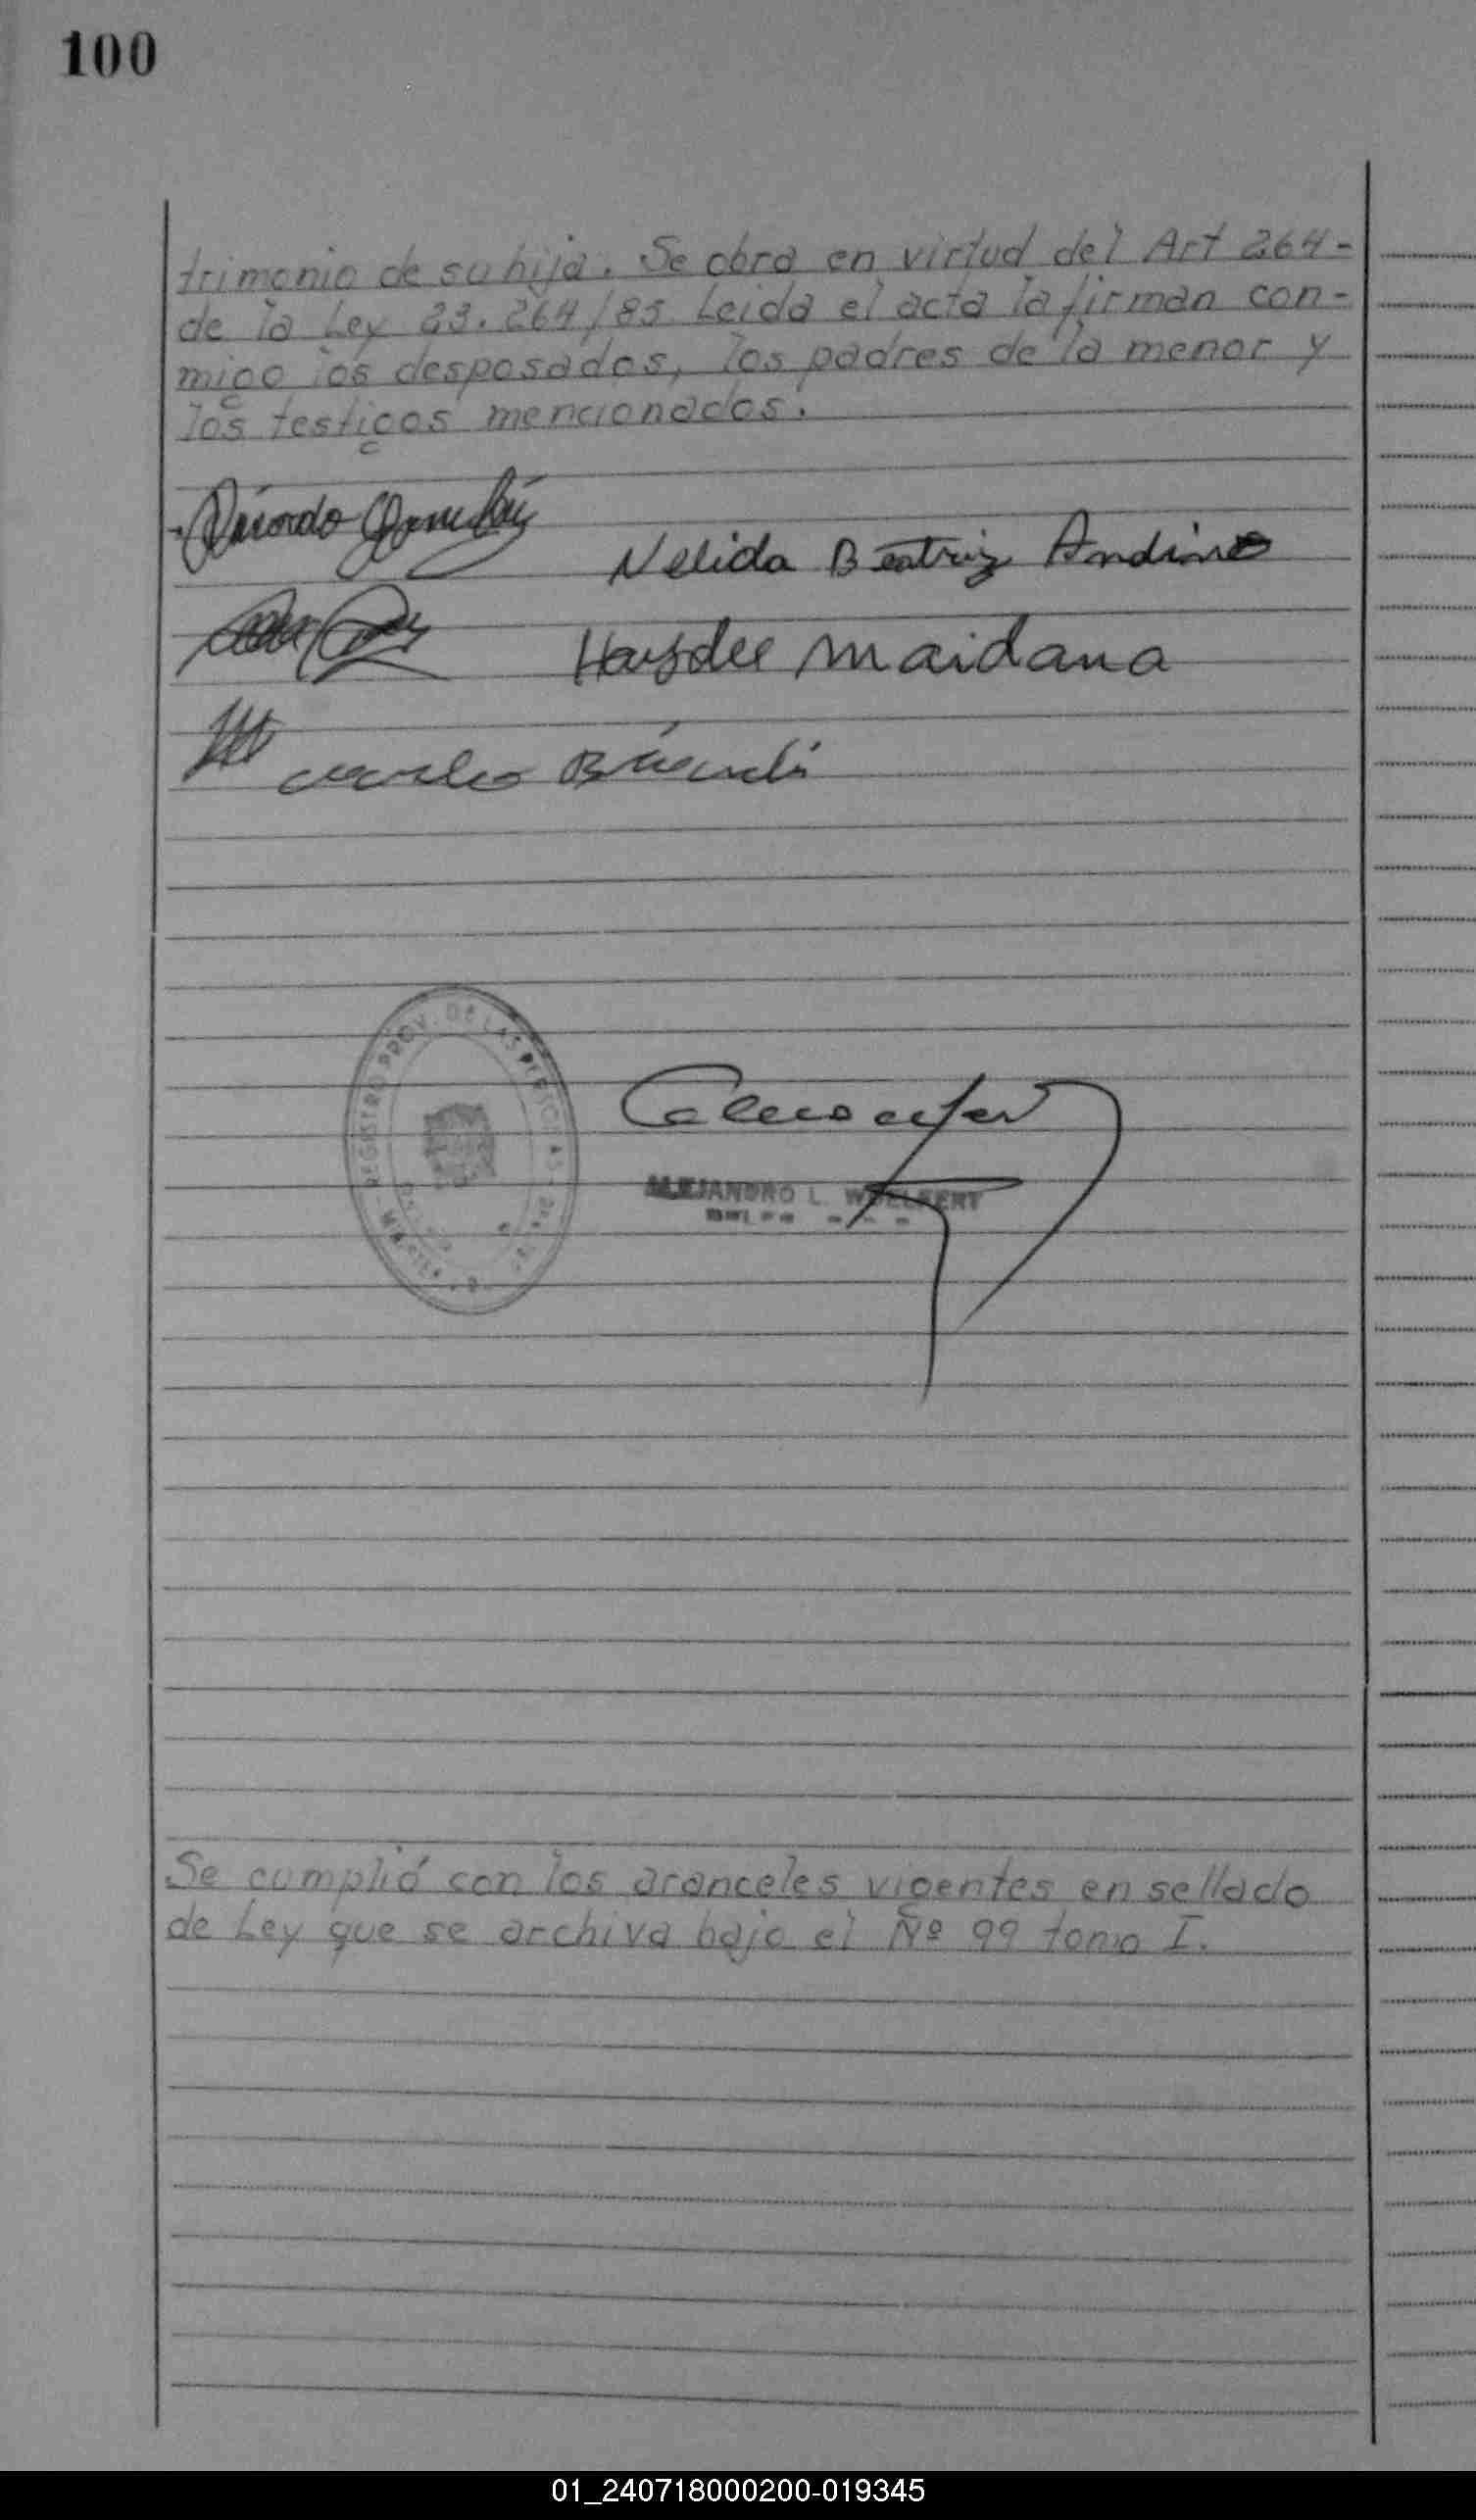 100
trimonio de su hija. Se obra en virtud del Art 264-
de la Ley 23.264/85 Leida el acta la firman con-
migo los desposados, los padres de la menor y
los testigos mencionados.
Ricardo
Nelida Beatriz Andino
Haydee Maidana
REGISTRO PROV. DE LAS PERSONAS
ALEJANDRO L. WOELFERT
Se cumplió con los aranceles vigentes en sellado
de Ley que se archiva bajo el Nº 99 tomo I.
01_240718000200-019345